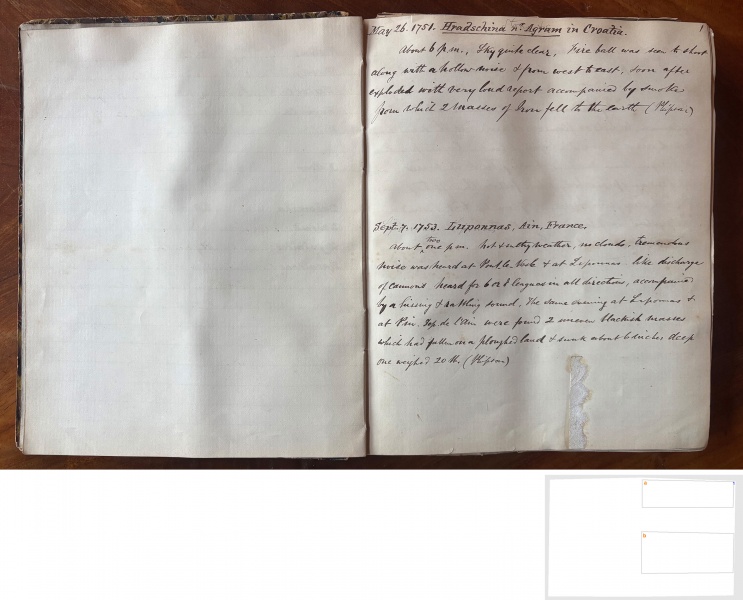 1
May 26. 1751. Hradschina nr. Agram in Croatia.
About 6 p.m., Sky quite clear, Fire ball was seen to shoot
along with a hollow noise & from west to east, soon after
exploded with very loud report accompanied by smoke
from which 2 masses of Iron fell to the earth (Phipson)
Sept. 7. 1753. Luponnas, Ain, France.
About two one p.m. hot & sultry weather, no clouds, tremendous
noise was heard at Pont de Vesle & at Liponnas like discharge
of cannons heard for 6 or 8 leagues in all directions, accompanied
by a hissing & rattling sound, The same evening at Liponnas &
at Pin. Dep. de l'Ain were found 2 uneven blackish masses
which had fallen on a ploughed land & sunk about 6 inches deep
one weighed 20 lb. (Phipson)
a
b